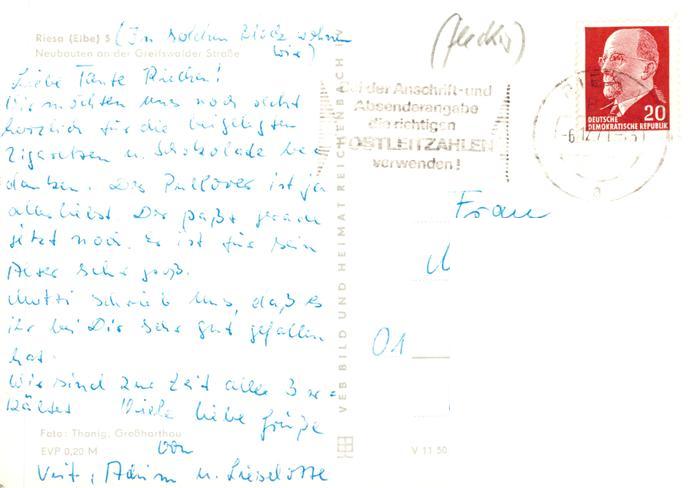 Riesa (Elbe) 5 (In solchen Block wohnen
Neubauten an der Greifswalder Straße wir)
Liebe Tante Riechen!
Wir möchten uns noch recht
herzlich für die beigelegten
Zigaretten u. Schokolade be=
danken. Der Pullover ist ja
allerliebst. Der paßt gerade
jetzt noch. Er ist für sein
Alter sehr groß.
Mutti schrieb uns, daß es
ihr bei Dir sehr gut gefallen
hat.
Wir sind zur Zeit alle 3 er=
kältet. Viele liebe Grüße
von
Veit, Achim u. Lieselotte
Foto: Thonig, Großharthau
EVP 0,20 M
VEB BILD UND HEIMAT REICHENBACH
V 11 50
Bei der Anschrift-und
Absenderangabe
die richtigen
POSTLEITZAHLEN
verwenden!
20
DEUTSCHE
DEMOKRATISCHE REPUBLIK
-6.12.71
Frau
01